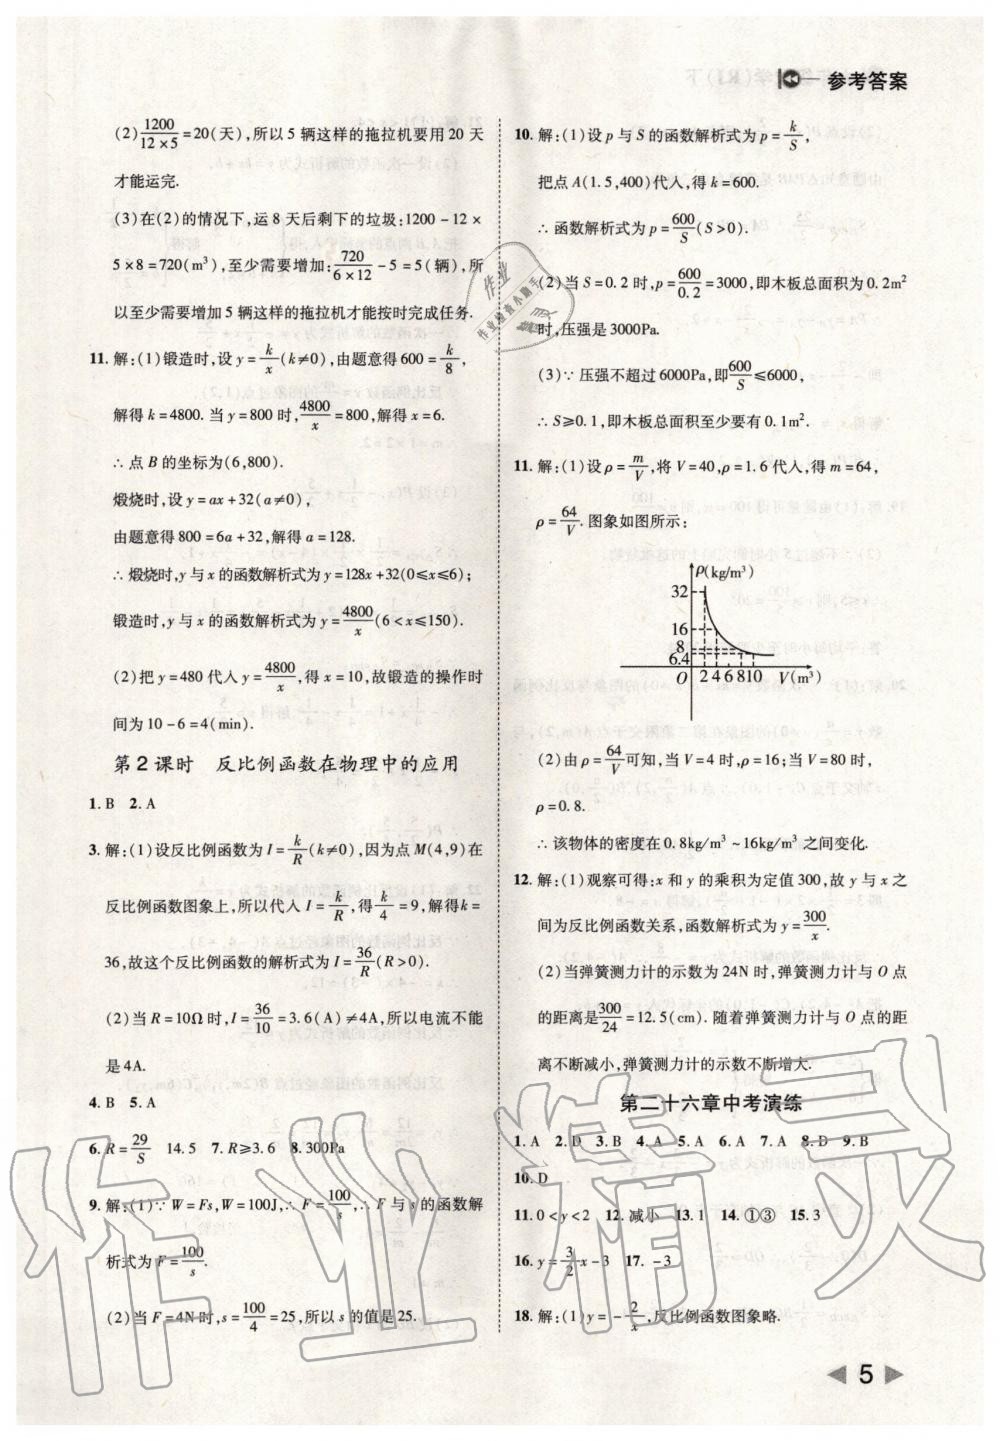 参考答案
(2)1200/12×5=20(天),所以5辆这样的拖拉机要用20天
才能运完.
(3)在(2)的情况下,运8天后剩下的垃圾:1200-12×
5×8=720(m³),至少需要增加:720/6×12-5=5(辆),所
以至少需要增加5辆这样的拖拉机才能按时完成任务.
11.解:(1)锻造时,设y=k/x(k≠0),由题意得600=k/8,
解得k=4800.当y=800时,4800/x=800,解得x=6.
∴点B的坐标为(6,800).
煅烧时,设y=ax+32(a≠0),
由题意得800=6a+32,解得a=128.
∴煅烧时,y与x的函数解析式为y=128x+32(0≤x≤6);
锻造时,y与x的函数解析式为y=4800/x(6<x≤150).
(2)把y=480代人y=4800/x,得x=10,故锻造的操作时
间为10-6=4(min).
第2课时 反比例函数在物理中的应用
1.B 2.A
3.解:(1)设反比例函数为I=k/R(k≠0),因为点M(4,9)在
反比例函数图象上,所以代人I=k/R,得k/4=9,解得k=
36,故这个反比例函数的解析式为I=36/R(R>0).
(2)当R=10Ω时,I=36/10=3.6(A)≠4A,所以电流不能
是4A.
4.B 5.A
6.R=29/S 14.5 7.R≥3.6 8.300Pa
9.解:(1)∵W=Fs,W=100J,∴F=100/s,∴F与s的函数解
析式为F=100/s.
(2)当F=4N时,s=100/4=25,所以s的值是25.
10.解:(1)设p与S的函数解析式为p=k/S,
把点A(1.5,400)代人,得k=600.
∴函数解析式为p=600/S(S>0).
(2)当S=0.2时,p=600/0.2=3000,即木板总面积为0.2m²
时,压强是3000Pa.
(3)∵压强不超过6000Pa,即600/S≤6000,
∴S≥0.1,即木板总面积至少要有0.1m².
11.解:(1)设ρ=m/V,将V=40,ρ=1.6代人,得m=64,
ρ=64/V.图象如图所示:
ρ(kg/m³)
32
16
8
6.4
O 2 4 6 8 10 V(m³)
(2)由ρ=64/V可知,当V=4时,ρ=16;当V=80时,
ρ=0.8.
∴该物体的密度在0.8kg/m³~16kg/m³之间变化.
12.解:(1)观察可得:x和y的乘积为定值300,故y与x之
间为反比例函数关系,函数解析式为y=300/x.
(2)当弹簧测力计的示数为24N时,弹簧测力计与O点
的距离是300/24=12.5(cm).随着弹簧测力计与O点的距
离不断减小,弹簧测力计的示数不断增大.
第二十六章中考演练
1.A 2.D 3.B 4.A 5.A 6.A 7.A 8.D 9.B
10.D
11.0<y<2 12.减小 13.1 14.①③ 15.3
16.y=3/2x-3 17.-3
18.解:(1)y=-2/x,反比例函数图象略.
5
作业精灵